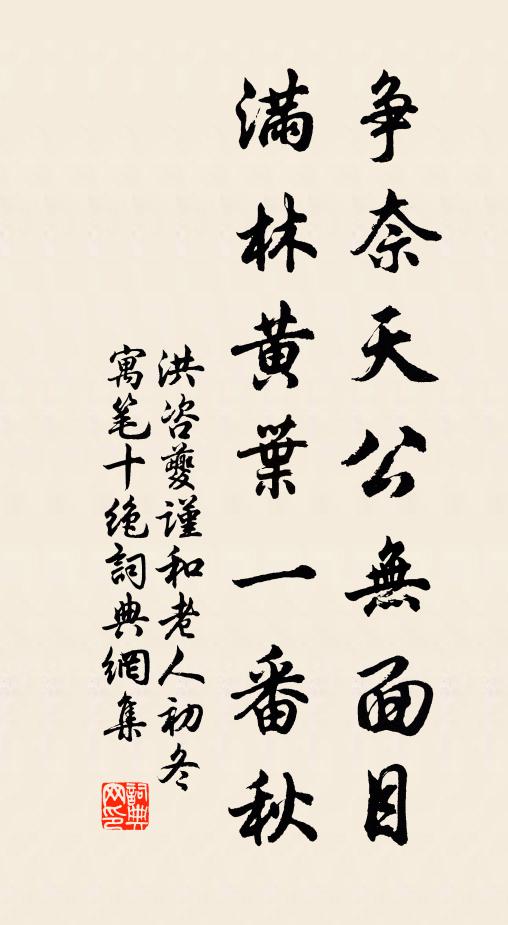 争奈天公無面目
滿林黃葉一番秋
洪咨夔謹和老人初冬
寓笔十絶詞典網集
詞典网印